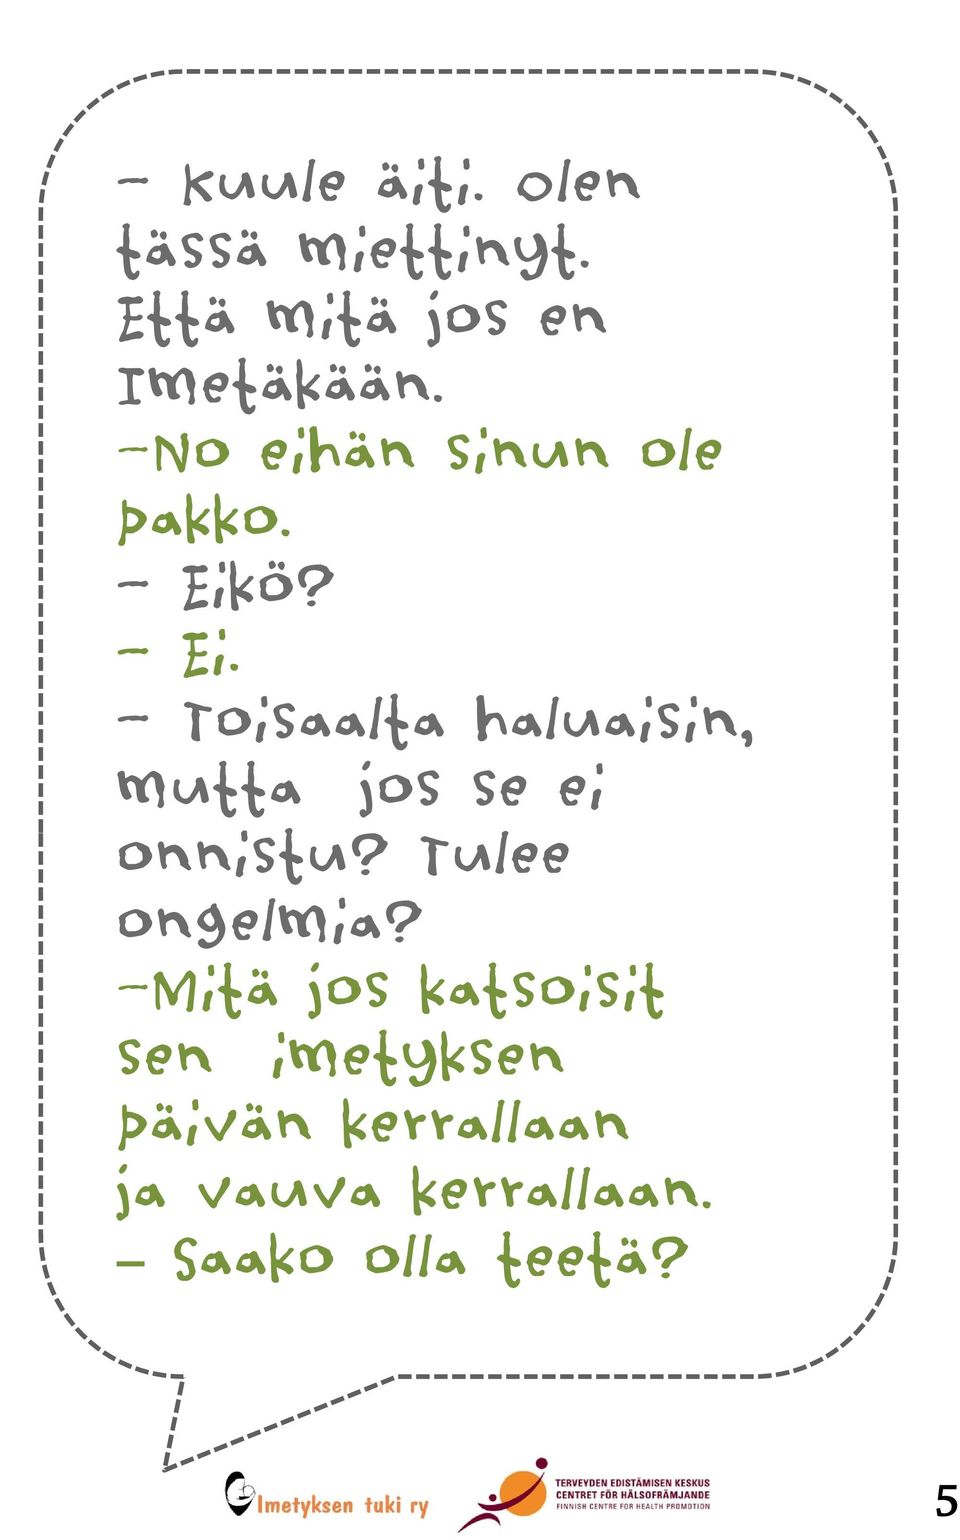 - Kuule äiti. Olen
tässä miettinyt.
Että mitä jos en
Imetäkään.
-No eihän sinun ole
pakko.
- Eikö?
- Ei.
- Toisaalta haluaisin,
mutta jos se ei
onnistu? Tulee
ongelmia?
-Mitä jos katsoisit
sen imetyksen
päivän kerrallaan
ja vauva kerrallaan.
– Saako olla teetä?
Imetyksen tuki ry
TERVEYDEN EDISTÄMISEN KESKUS
CENTRET FÖR HÄLSOFRÄMJANDE
FINNISH CENTRE FOR HEALTH PROMOTION
5